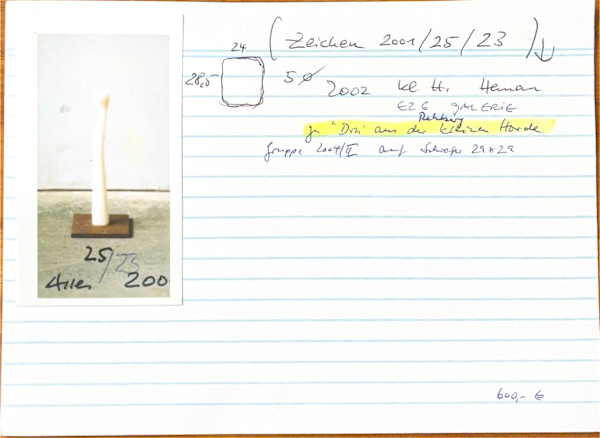 24
(Zeichen 2001/25/23)
28,0
5 Ø
2002 kl. H. Heman
EZ 6 GALERIE
zu "Drei aus der kleinen Horde
Gruppe 2004/II auf Schiefer 29x29
25/23
200
600,- €